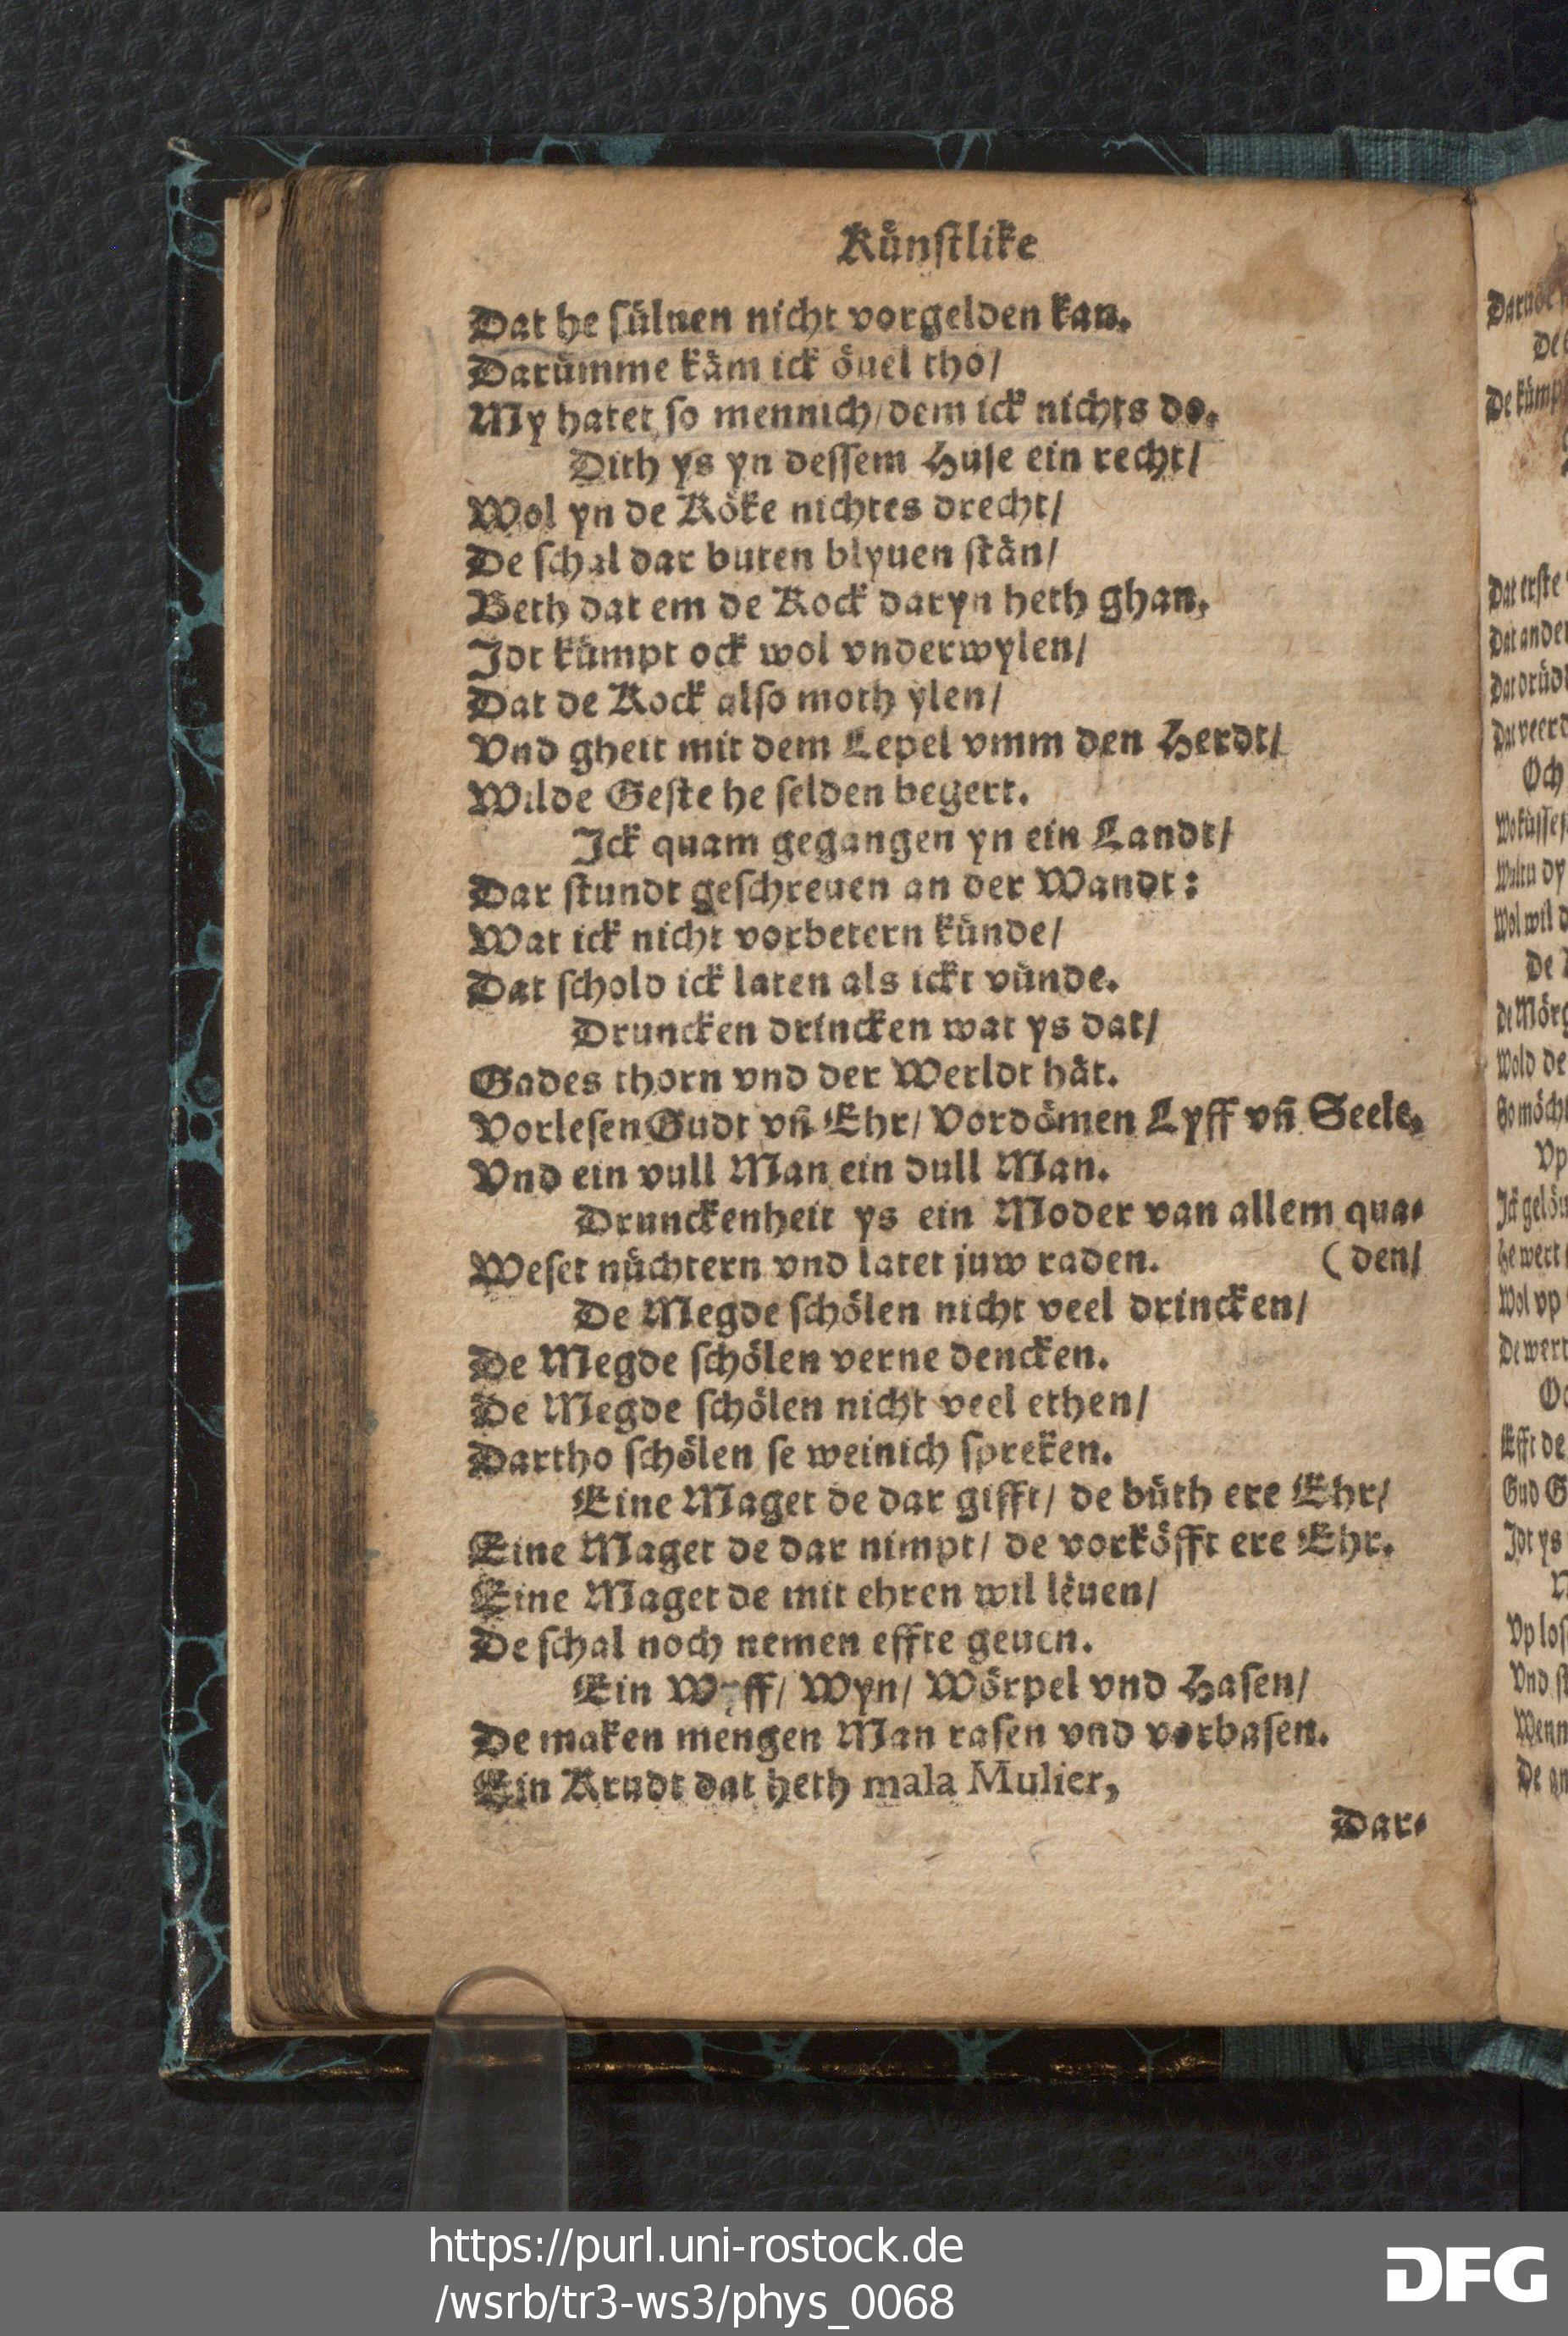 Kuͤnſtlike
Dat he ſuͤluen nicht vorgelden kan.
Daruͤmme kaͤm ick oͤuel tho/
My hatet ſo mennich/dem ick nichts do.
Dith ys yn deſſem Huſe ein recht/
Wol yn de Koͤke nichtes drecht/
De ſchal dar buten blyuen ſtaͤn/
Beth dat em de Kock daryn heth ghan.
Idt kuͤmpt ock wol vnderwylen/
Dat de Kock alſo moth ylen/
Vnd gheit mit dem Lepel vmm den Herdt/
Wilde Geſte he ſelden begert.
Ick quam gegangen yn ein Landt/
Dar ſtundt geſchreuen an der Wandt:
Wat ick nicht vorbetern kuͤnde/
Dat ſchold ick laten als ickt vuͤnde.
Druncken drincken wat ys dat/
Gades thorn vnd der Werldt haͤt.
Vorleſen Gudt vñ Ehr/ Vordoͤmen Lyff vñ Seele.
Vnd ein vull Man ein dull Man.
Drunckenheit ys ein Moder van allem qua-
Weſet nuͤchtern vnd latet juw raden. (den/
De Megde ſchoͤlen nicht veel drincken/
De Megde ſchoͤlen verne dencken.
De Megde ſchoͤlen nicht veel ethen/
Dartho ſchoͤlen ſe weinich ſpreken.
Eine Maget de dar gifft/ de buͤth ere Ehr/
Eine Maget de dar nimpt/ de vorkoͤfft ere Ehr.
Eine Maget de mit ehren wil leͤuen/
De ſchal noch nemen effte geuen.
Ein Wyff/ Wyn/ Woͤrpel vnd Haſen/
De maken mengen Man raſen vnd vorbaſen.
Ein Krudt dat heth mala Mulier,
Dar-
Dat erſte
Dat ander
https://purl.uni-rostock.de
/wsrb/tr3-ws3/phys_0068
DFG